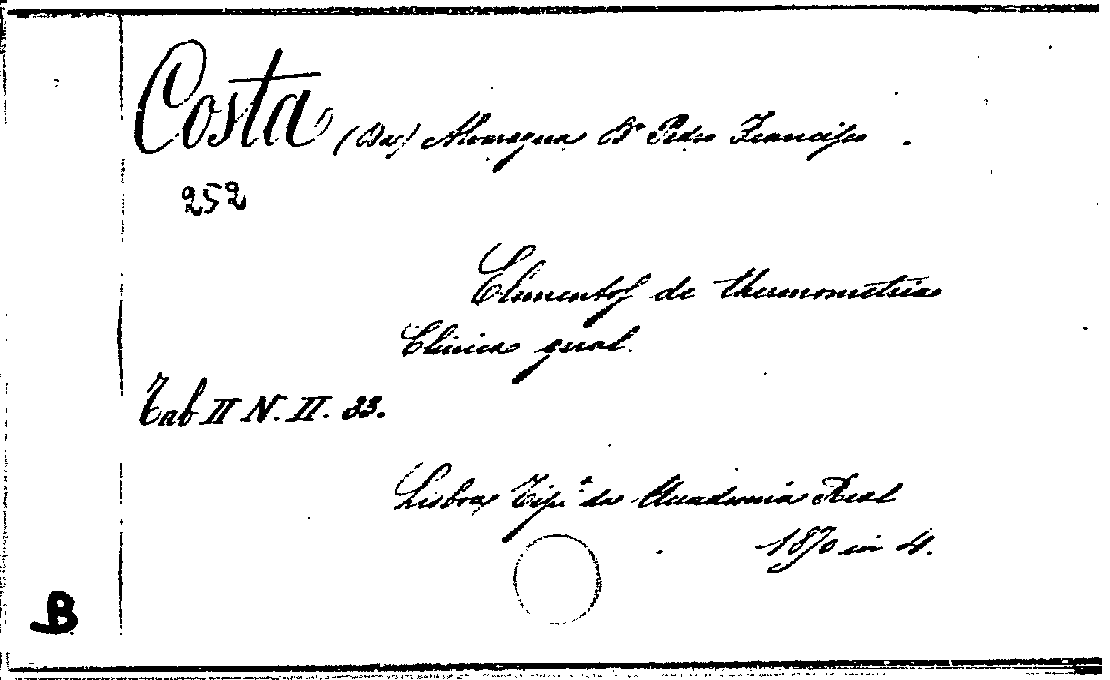 Costa (Da) Alvarenga Dr Pedro Francisco.
252
Elementos de thermometria
Clinica geral.
Tab II N. II. 33.
Lisboa, Tip.ª da Academia Real
1870 in 4.
B